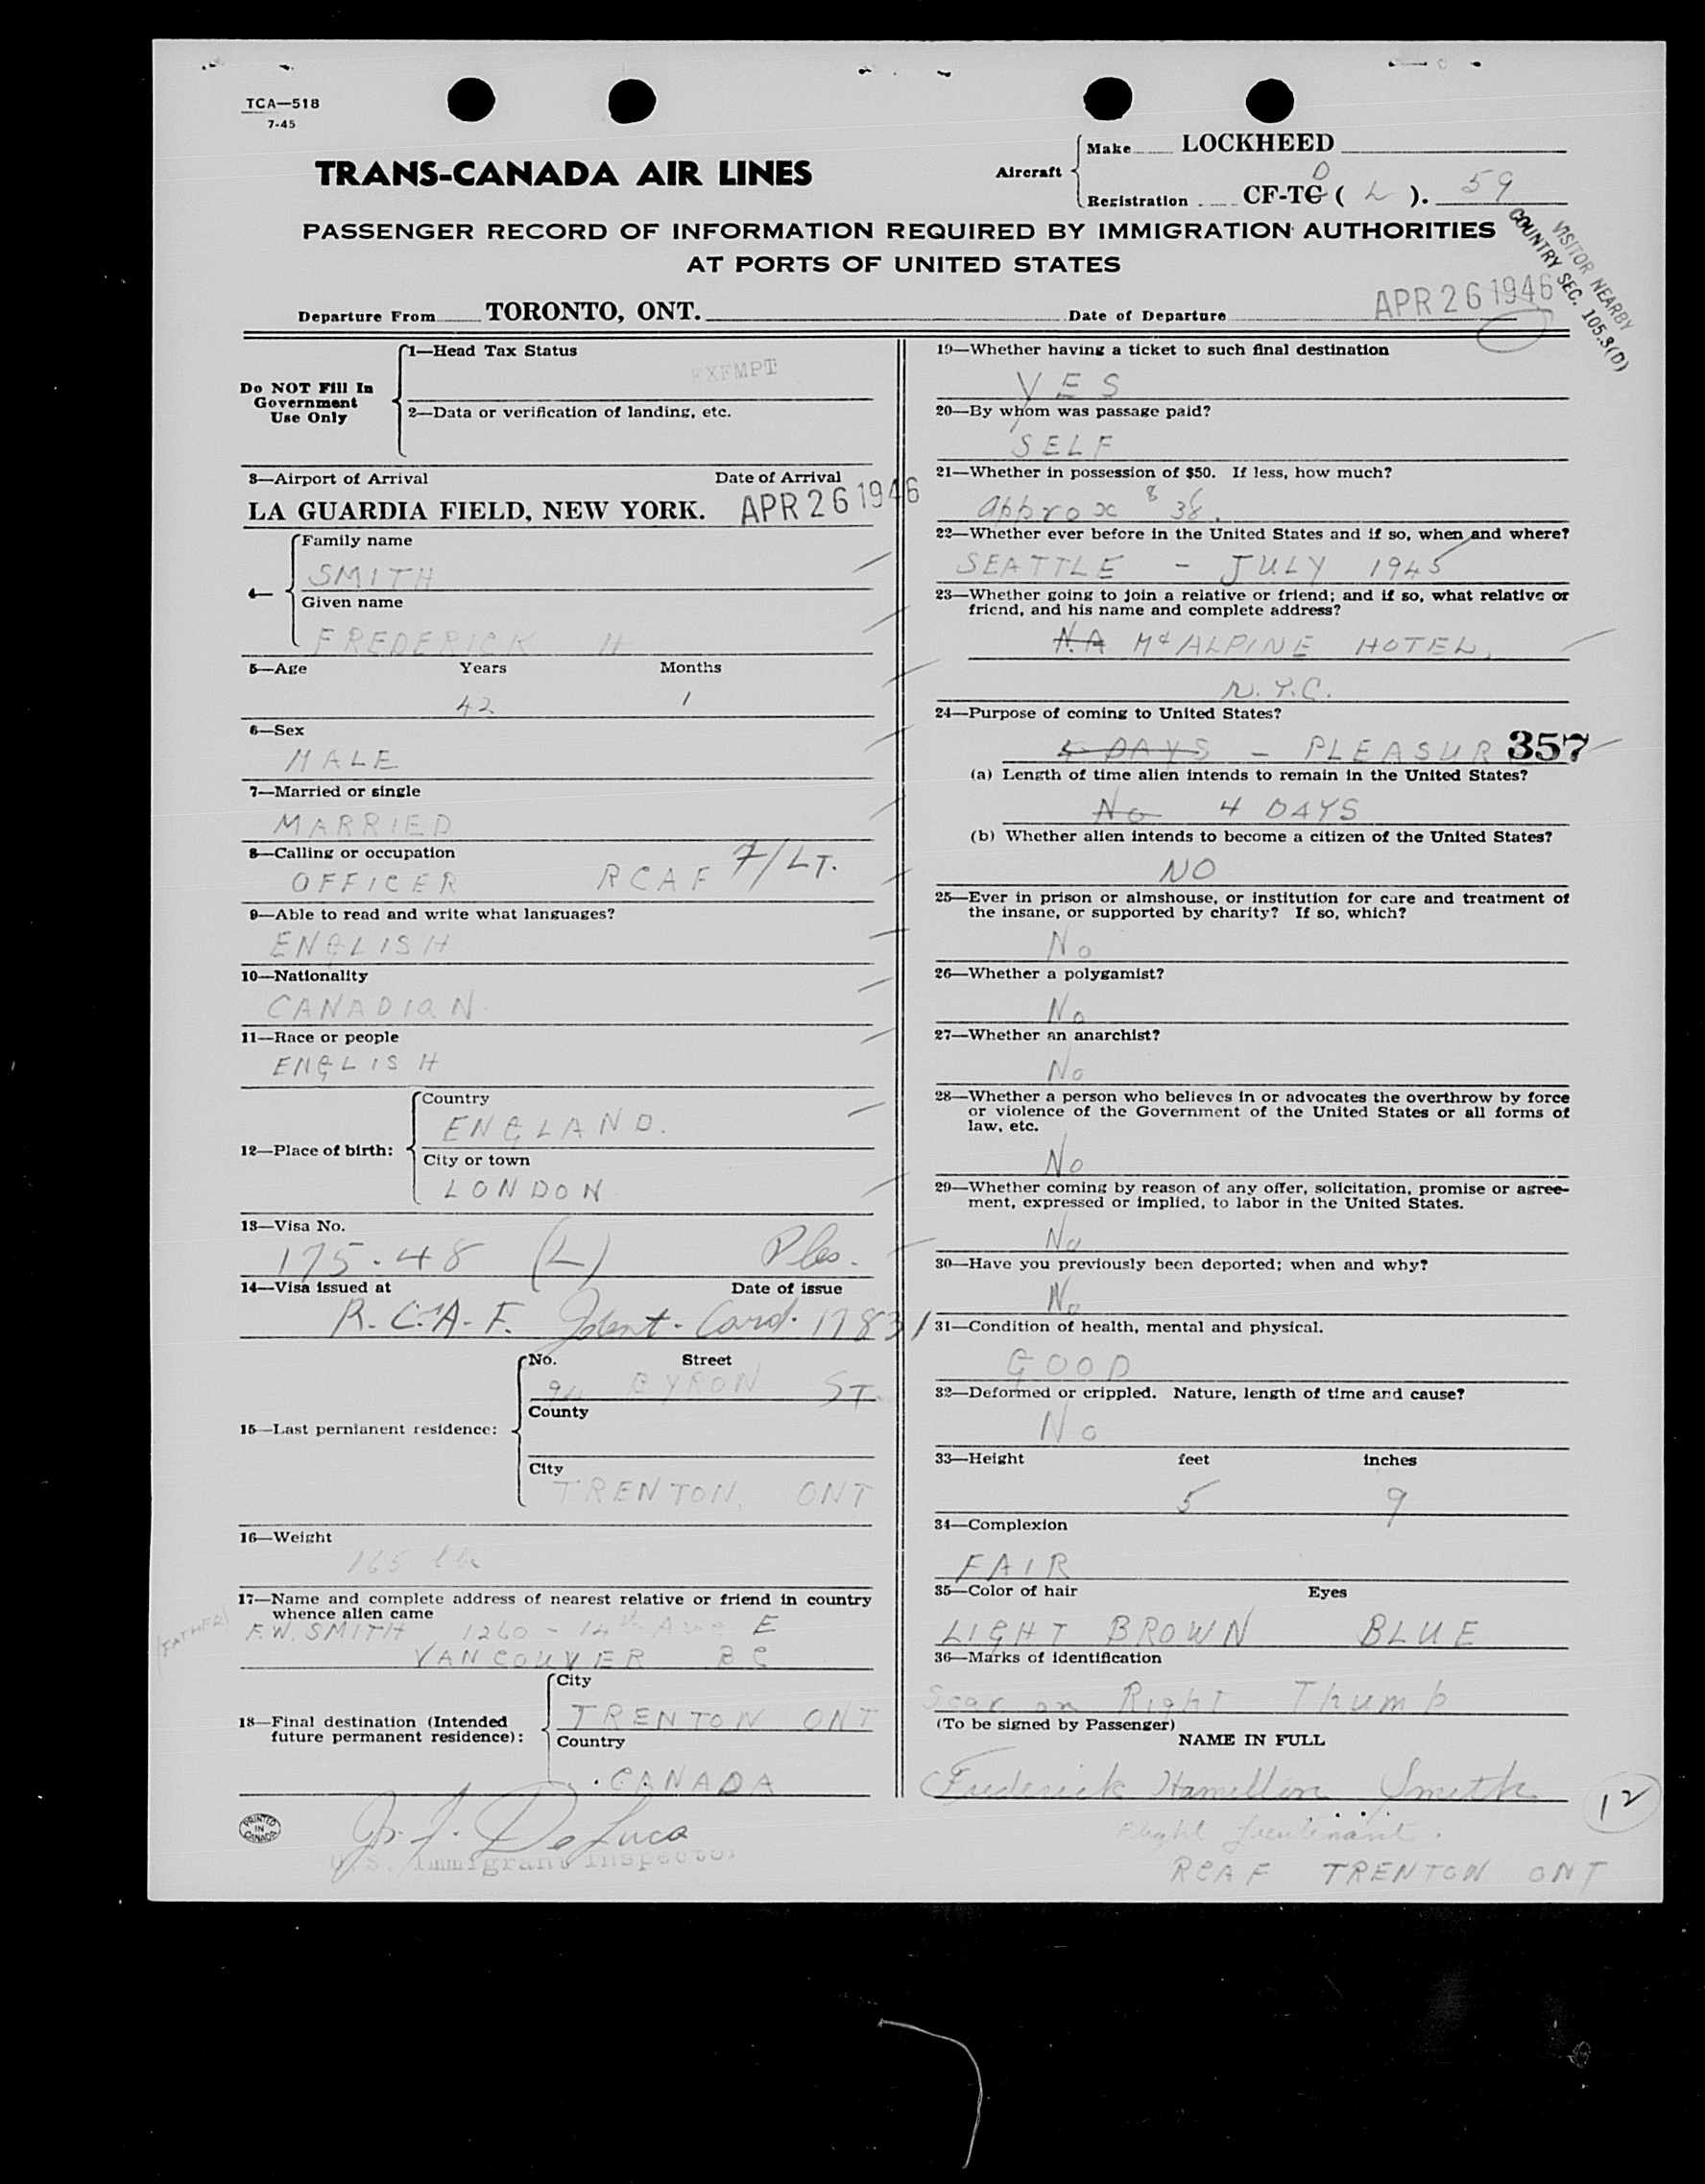 TCA—518
7-45
TRANS-CANADA AIR LINES
Aircraft
Make LOCKHEED
Registration CF-TG D ( L ). 59
PASSENGER RECORD OF INFORMATION REQUIRED BY IMMIGRATION AUTHORITIES
AT PORTS OF UNITED STATES
VISITOR NEARBY
COUNTRY SEC. 105.3(D)
Departure From TORONTO, ONT. Date of Departure APR 26 1946
Do NOT Fill In
Government
Use Only
1—Head Tax Status
EXEMPT
2—Data or verification of landing, etc.
3—Airport of Arrival Date of Arrival
LA GUARDIA FIELD, NEW YORK. APR 26 1946
4—
Family name
SMITH
Given name
FREDERICK H
5—Age Years Months
42 1
6—Sex
MALE
7—Married or single
MARRIED
8—Calling or occupation
OFFICER RCAF F/LT.
9—Able to read and write what languages?
ENGLISH
10—Nationality
CANADIAN
11—Race or people
ENGLISH
12—Place of birth:
Country
ENGLAND.
City or town
LONDON
13—Visa No.
175.48 (L) Ples.
14—Visa issued at Date of issue
R.C.A.F. Ident. Card. 17831
15—Last permanent residence:
No. Street
BYRON ST.
County
City
TRENTON, ONT
16—Weight
165 lbs
17—Name and complete address of nearest relative or friend in country
whence alien came
(FATHER) F.W. SMITH 1260 - 14th Ave E
VANCOUVER BC
18—Final destination (Intended
future permanent residence):
City
TRENTON ONT
Country
CANADA
PRINTED
IN
CANADA
J. De Luca
U.S. Immigrant Inspector
19—Whether having a ticket to such final destination
YES
20—By whom was passage paid?
SELF
21—Whether in possession of $50. If less, how much?
approx $ 38.
22—Whether ever before in the United States and if so, when and where?
SEATTLE - JULY 1945
23—Whether going to join a relative or friend; and if so, what relative or
friend, and his name and complete address?
N.A McALPINE HOTEL,
N.Y.C.
24—Purpose of coming to United States?
4 DAYS - PLEASUR 357
(a) Length of time alien intends to remain in the United States?
No 4 DAYS
(b) Whether alien intends to become a citizen of the United States?
NO
25—Ever in prison or almshouse, or institution for care and treatment of
the insane, or supported by charity? If so, which?
No
26—Whether a polygamist?
No
27—Whether an anarchist?
No
28—Whether a person who believes in or advocates the overthrow by force
or violence of the Government of the United States or all forms of
law, etc.
No
29—Whether coming by reason of any offer, solicitation, promise or agree-
ment, expressed or implied, to labor in the United States.
No
30—Have you previously been deported; when and why?
No
31—Condition of health, mental and physical.
GOOD
32—Deformed or crippled. Nature, length of time and cause?
No
33—Height feet inches
5 9
34—Complexion
FAIR
35—Color of hair Eyes
LIGHT BROWN BLUE
36—Marks of identification
Scar on Right Thumb
(To be signed by Passenger)
NAME IN FULL
Frederick Hamilton Smith
12
Flight Lieutenant.
RCAF TRENTON ONT